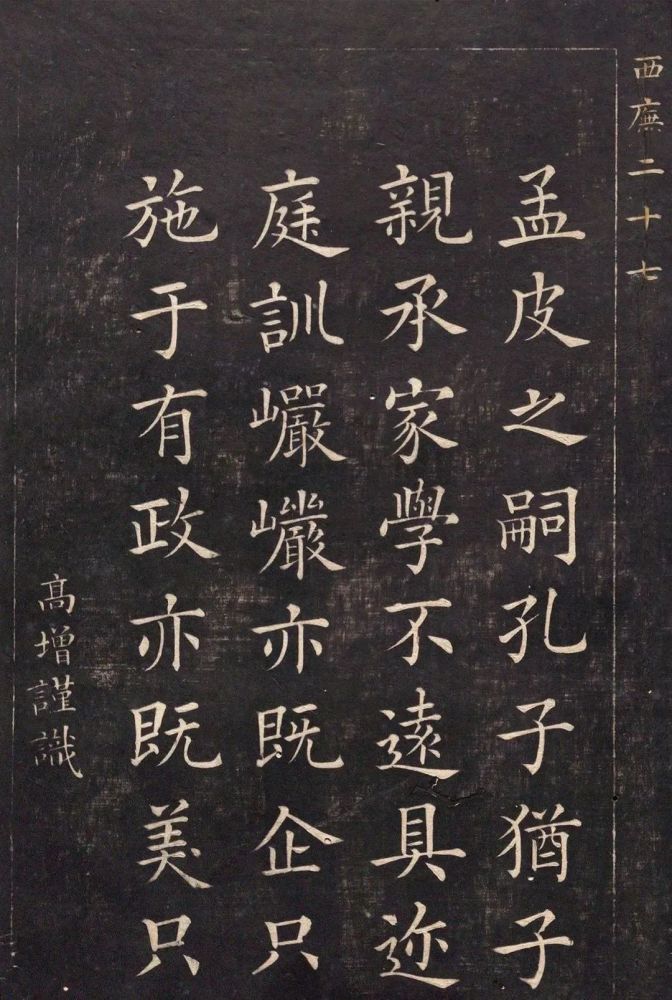 西廡二十七
孟皮之嗣孔子猶子
親承家學不遠具迩
庭訓巗巗亦既企只
施于有政亦既美只
高增謹識